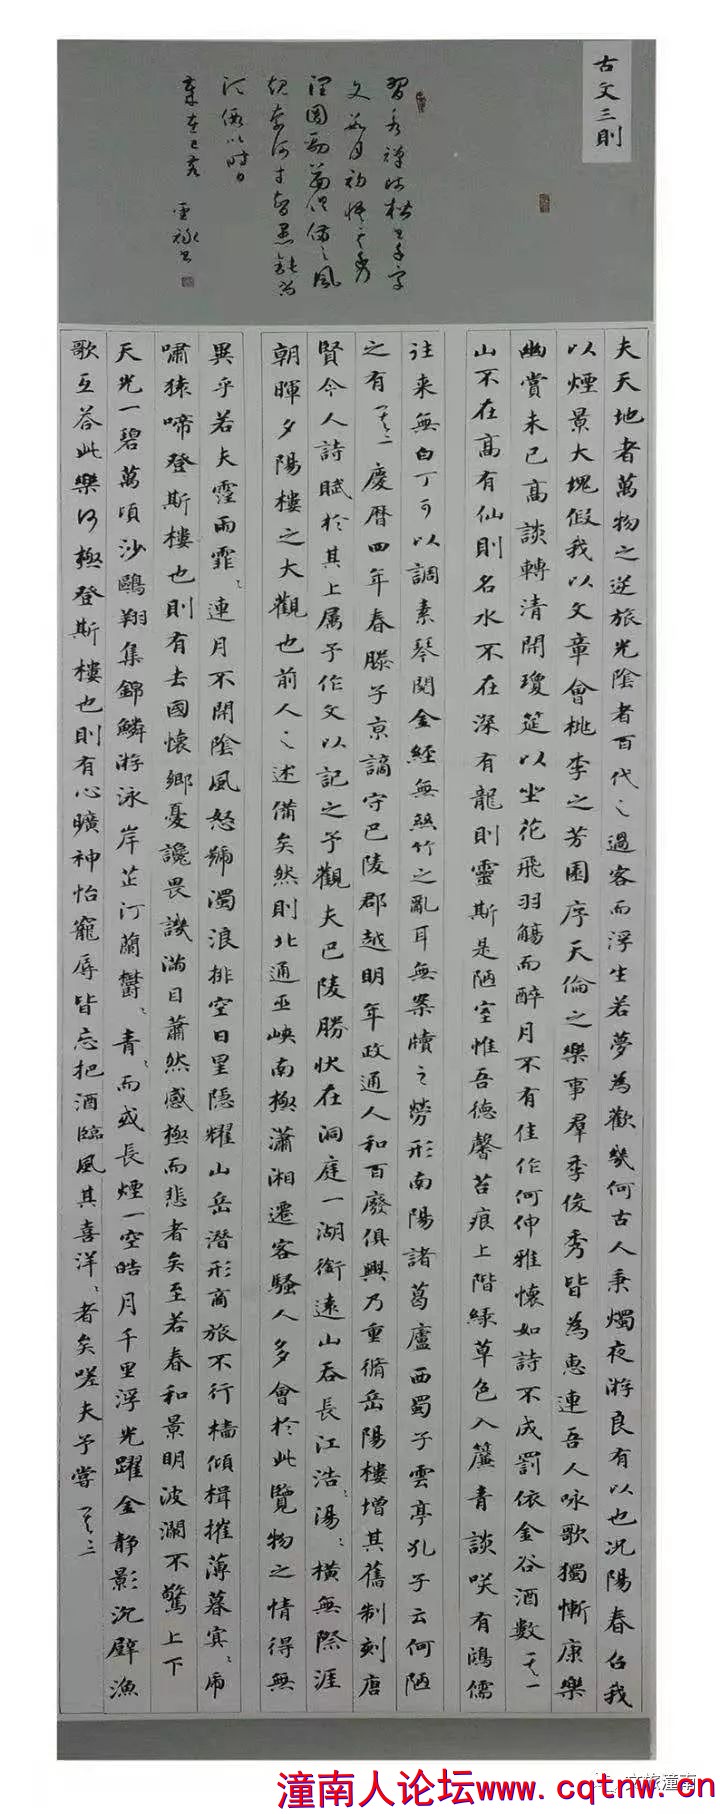 古文三則
夫天地者萬物之逆旅光陰者百代〻過客而浮生若夢為歡幾何古人秉燭夜游良有以也況陽春召我
以煙景大塊假我以文章會桃李之芳園序天倫之樂事羣季俊秀皆為惠連吾人咏歌獨慚康樂
幽賞未已高談轉清開瓊筵以坐花飛羽觴而醉月不有佳作何伸雅懷如詩不成罰依金谷酒數其一
山不在高有仙則名水不在深有龍則靈斯是陋室惟吾德馨苔痕上階綠草色入簾青談咲有鴻儒
往来無白丁可以調素琴閱金經無絲竹之亂耳無案牘之勞形南陽諸葛廬西蜀子雲亭孔子云何陋
之有其二慶曆四年春滕子京謫守巴陵郡越明年政通人和百廢俱興乃重脩岳陽樓增其舊制刻唐
賢今人詩賦於其上属予作文以記之予觀夫巴陵勝狀在洞庭一湖銜遠山吞長江浩〻湯〻橫無際涯
朝暉夕陽樓之大觀也前人〻述備矣然則北通巫峽南極瀟湘遷客騷人多會於此覽物之情得無
異乎若夫霪雨霏〻連月不開陰風怒號濁浪排空日星隱耀山岳潛形商旅不行檣傾楫摧薄暮冥〻虎
嘯猿啼登斯樓也則有去國懷鄉憂讒畏譏滿目蕭然感極而悲者矣至若春和景明波瀾不驚上下
天光一碧萬頃沙鷗翔集錦鱗游泳岸芷汀蘭鬱〻青〻而或長煙一空皓月千里浮光躍金靜影沉璧漁
歌互答此樂何極登斯樓也則有心曠神怡寵辱皆忘把酒臨風其喜洋〻者矣嗟夫予嘗其三
文旅潼南
潼南人论坛www.cqtnw.cn